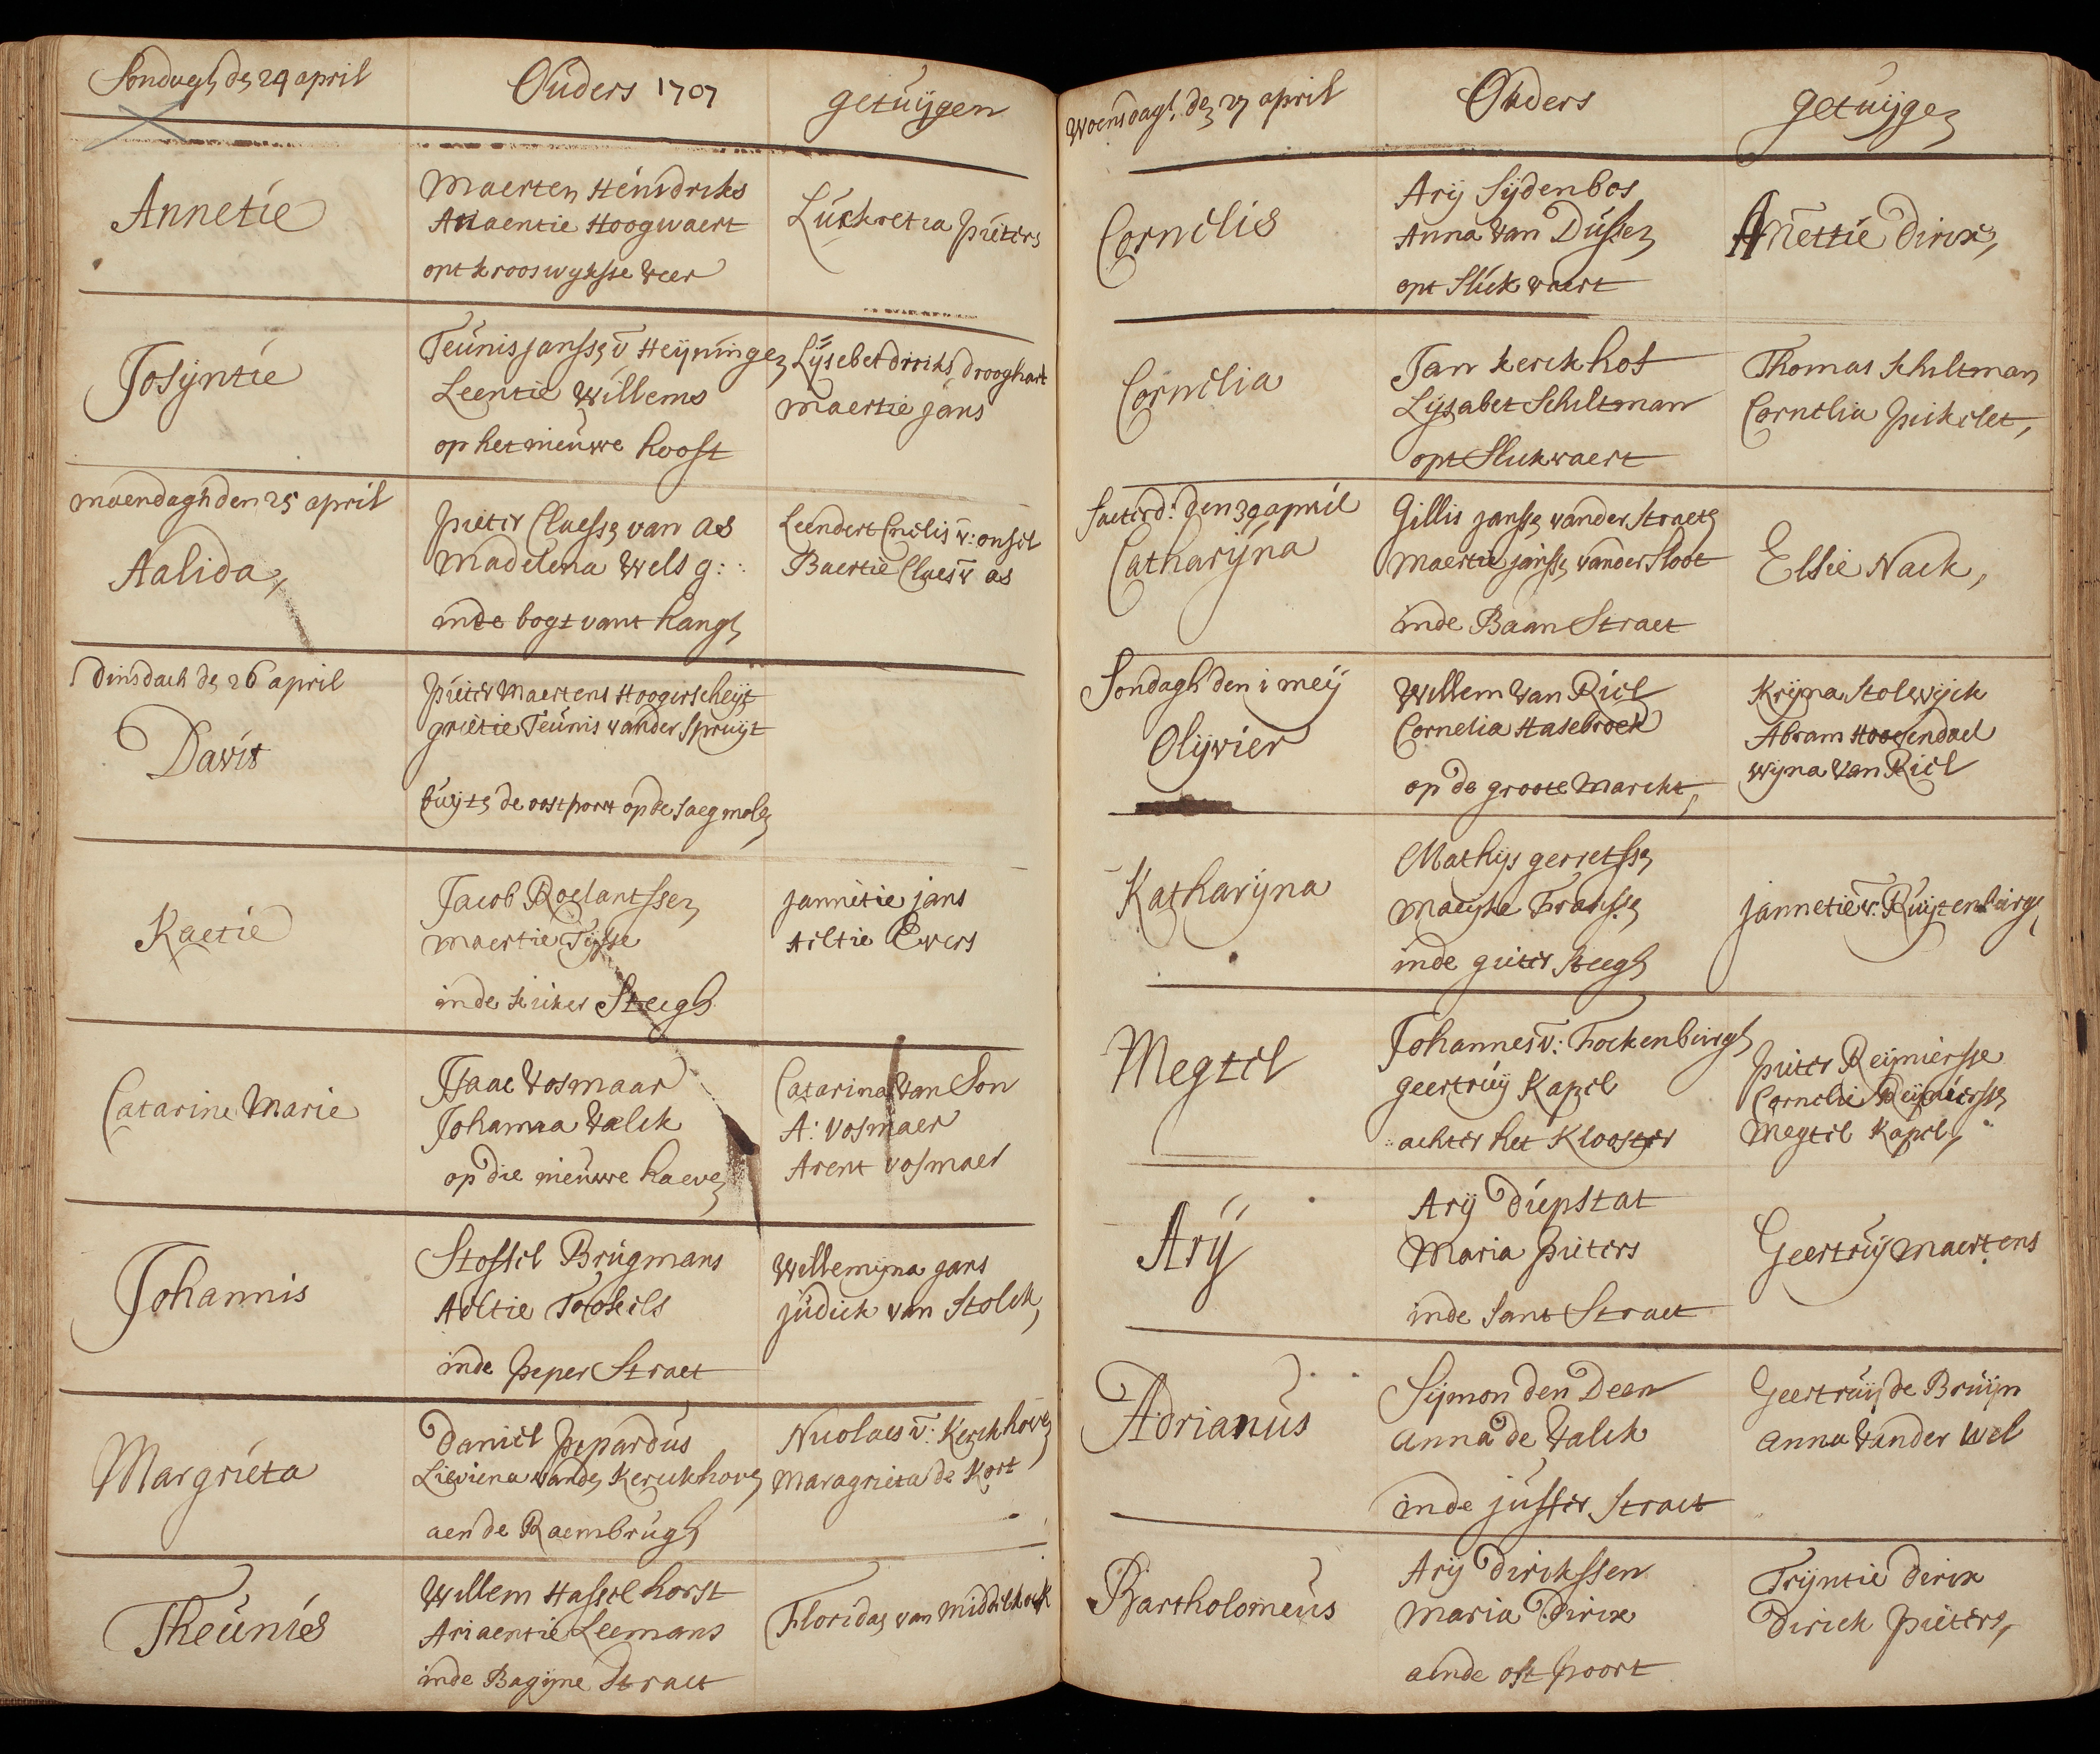 Sondagh de 24 april
Ouders 1707
getuijgen
Annetie
Maerten Heindriks
Ariaentie Hoogwaert
opt krooswykse veer
Luckretia pieters
Josyntie
Teunis Jansse v Heyningen
Leentie Willems
op het nieuwe hooft
Lijsebet driks drooghart
maertie jans
maendagh den 25 april
Aalida,
pieter Claesse van as
Madelena Wels g:
inde bogt vant hang
Leendert Cnelis v: onsel
Baertie Claes v as
dinsdach de 26 april
Davit
pieter Maertens Hoogerscheijt
grietie Teunis vander Spruijt
buijte de oostpoort op de saegmole
Kaetie
Jacob Roelantssen
Maertie Tijsse
inde kriker Steegh
jannetie jans
Aeltie Ewers
Catarine Marie
Isaac Vosmaar
Johanna Valck
op die nieuwe haeve
Catarina Van Son
A: Vosmaer
Arent vosmaer
Johannis
Stoffel Brugmans
Aeltie
inde peper Straet
Willemijna jans
judick van Stolck,
Margrieta
Daniel pepardus
Lieviena vande Kerckhove
aen de Raembrugh
Nicolaes v: Kerckhove
Maragrieta de Kort
Theunis
Willem Hasselhorst
Ariaentie Leemans
inde Bagijne Straet
Floridas van Middelhoek
Woensdagh de 27 april
Ouders
getuijge
Cornelis
Arij Sijdenbos
Anna Van Dusse
opt Slickvaert
Annettie dirix,
Cornelia
Jan kerckhof
Lijsabet Schiltman
opt Slickvaert
Thomas Schiltman
Cornelia pickelet,
Saeterd: den 30 april
Catharijna
Gillis Jansse vander Straete
Maertie Janse vander Sloot
inde Baan Straet
Elsie Nack,
Sondagh den 1 meij
Olijvier
Willem Van Riel
Cornelia Hasebroek
op de groote Marckt,
Krijna Stolwijck
Abram Hoogendael
Wijna Van Riel
Katharijna
Mathijs gerretsse
Maeijke Franse
inde gieter Steegh
jannetie v: Ruijtenburgh
Megtel
Johannes v: Fockenburgh
geertruij Kapel
achter het Klooster
pieter Reijniersse
Cornelie Reijniersse
Megtel Kapel,
Arij
Arij diepstat
Maria pieters
inde Sant Straet
Geertruij Maertens
Adrianus
Sijmon den Deen
Anna de Valck
inde juffer Straet
Geertruij de Bruijn
Anna Vander Wel
Bartholomeus
Arij dirckssen
Maria Dirix
aende ost poort
Trijntie dirix
Dirick pieters,